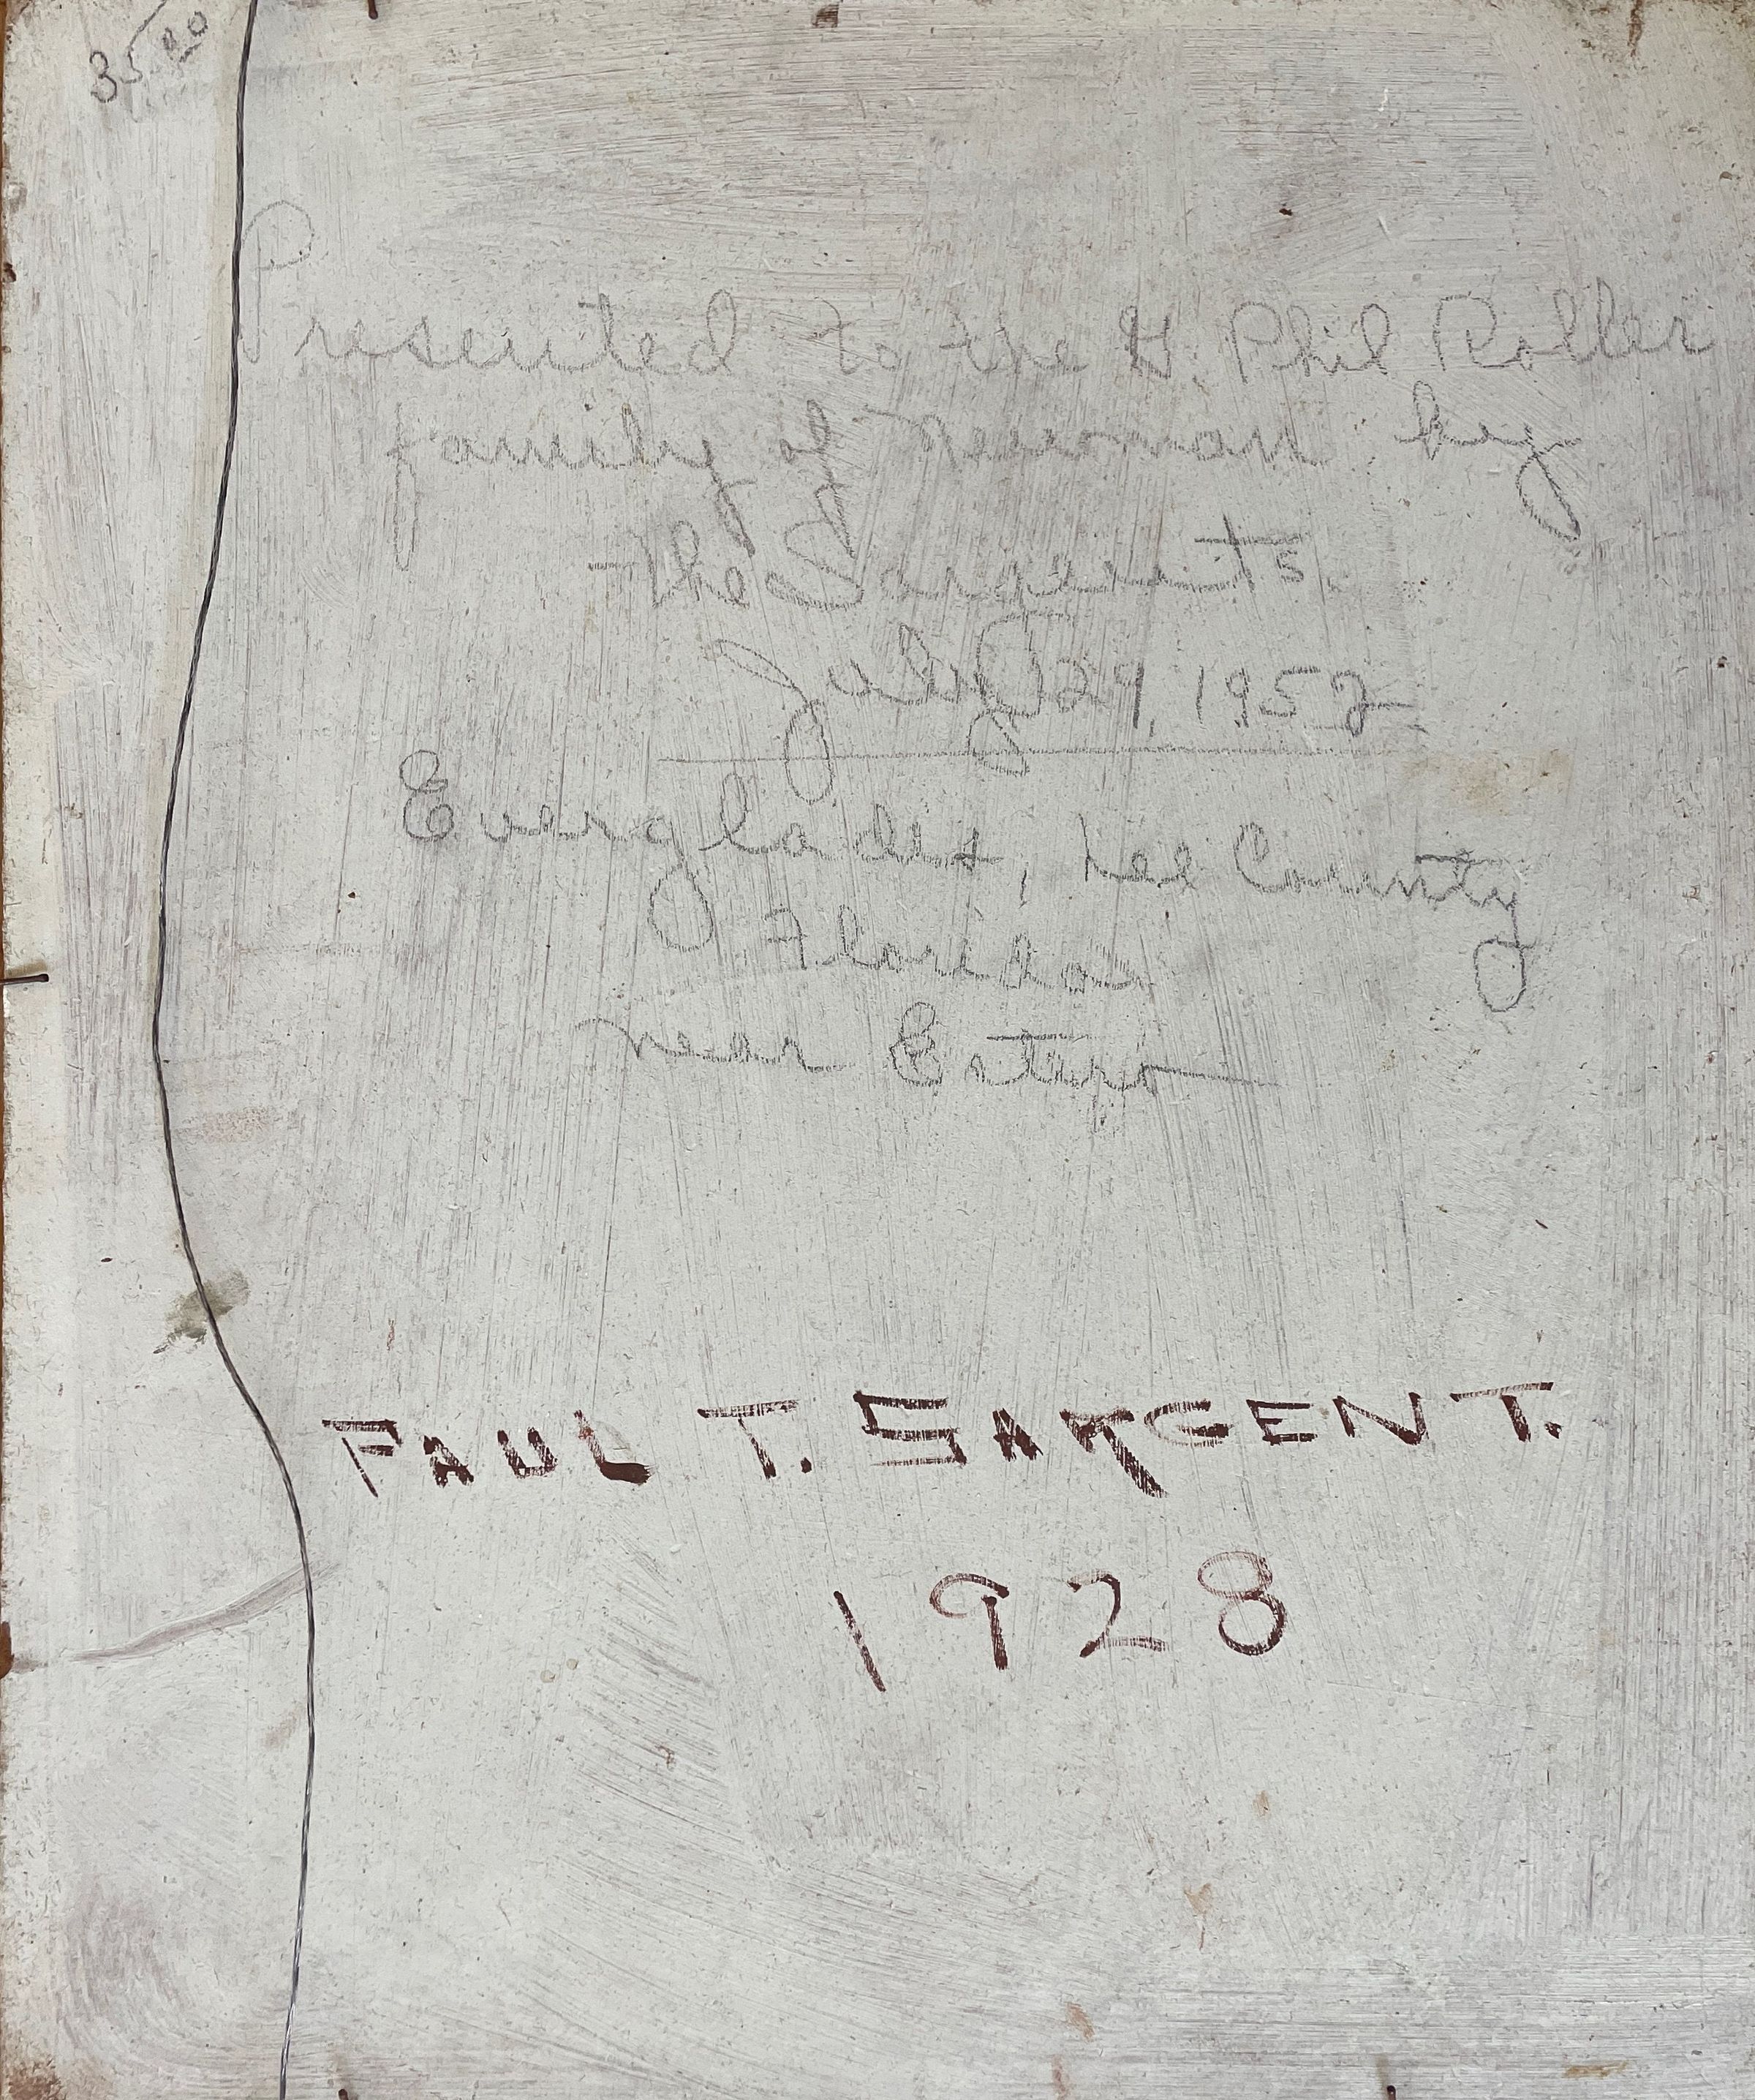 35.00
Presented to the H. Phil Roller
family of Newman by
the Sargents.
July 29, 1952
Everglades, Lee County
Florida
near Estero
PAUL T. SARGENT.
1928